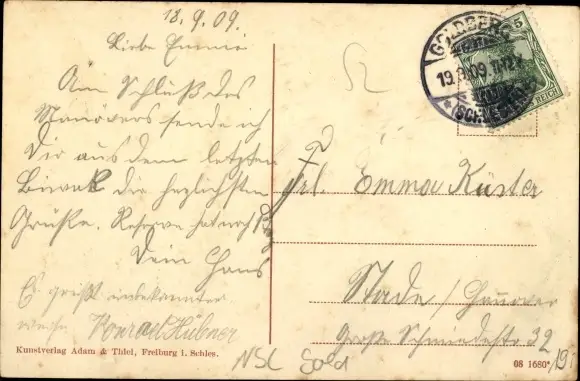 18.9.09.
Liebe Emmi
Am Schluß des
Manövers sende ich
Dir aus dem letzten
Biwak die herzlichsten
Grüße. Reserve hat noch
Dein Hans
Es grüßt unbekannter
weise Konrad Hübner
Kunstverlag Adam & Thiel, Freiburg i. Schles.
GOLDBERG
19.9.09. 11-12
(SCHLESIEN)
5
REICH
Frl. Emma Küster
Stade / Hannover
Große Schmiedestr 32
NSL Sold
68 1680